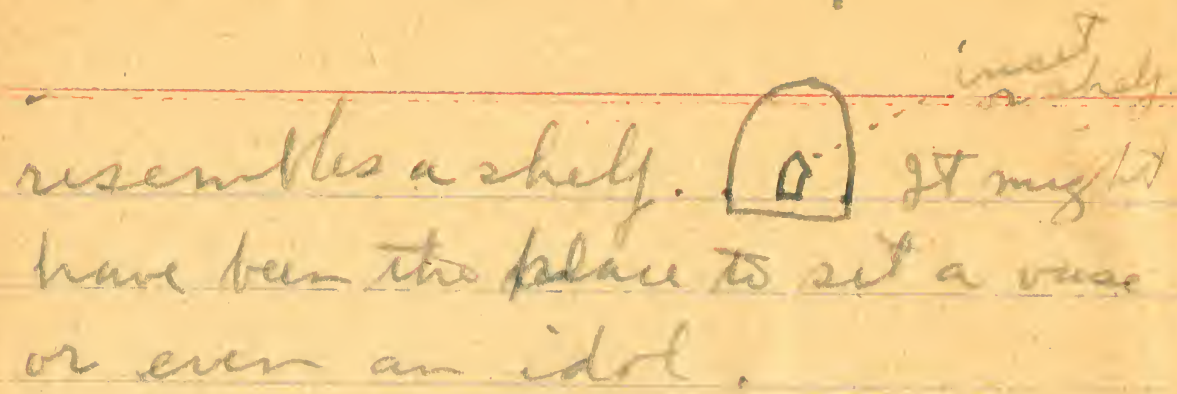 inset
or shelf
resembles a shelf. It might
have been the place to set a vase
or even an idol.